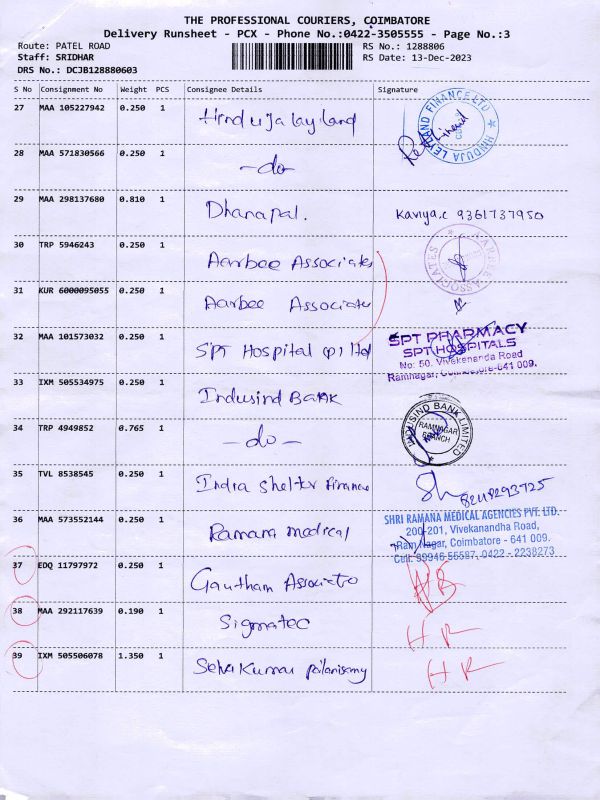 THE PROFESSIONAL COURIERS, COIMBATORE
Delivery Runsheet - PCX - Phone No.:0422-3505555 - Page No.:3
Route: PATEL ROAD RS No.: 1288806
Staff: SRIDHAR RS Date: 13-Dec-2023
DRS No.: DCJB128880603
S No Consignment No Weight PCS Consignee Details Signature
27 MAA 105227942 0.250 1 Hinduja layland
HINDUJA LEYLAND FINANCE LTD
28 MAA 571830566 0.250 1 -do-
29 MAA 298137680 0.810 1 Dhanapal. Kaviya.c 9361737950
30 TRP 5946243 0.250 1 Aarbee Associates
AARBEE ASSOCIATES
31 KUR 6000095055 0.250 1 Aarbee Associates
32 MAA 101573032 0.250 1 SPT Hospital (P) ltd
SPT PHARMACY
SPT HOSPITALS
No: 50. Vivekenanda Road
Ramnagar, Coimbatore-641 009.
33 IXM 505534975 0.250 1 Indusind Bank
34 TRP 4949852 0.765 1 -do-
INDUSIND BANK LIMITED
RAMNAGAR
BRANCH
35 TVL 8538545 0.250 1 Indra Shelter Finance
36 MAA 573552144 0.250 1 Ramana medical
SHRI RAMANA MEDICAL AGENCIES PVT. LTD.
200-201, Vivekanandha Road,
Ram Nagar, Coimbatore - 641 009.
Cell: 99946 56597, 0422 - 2238273
37 EDQ 11797972 0.250 1 Gautham Associate
38 MAA 292117639 0.190 1 Sigmatec H R
39 IXM 505506078 1.350 1 Selva Kumar palanisamy H R